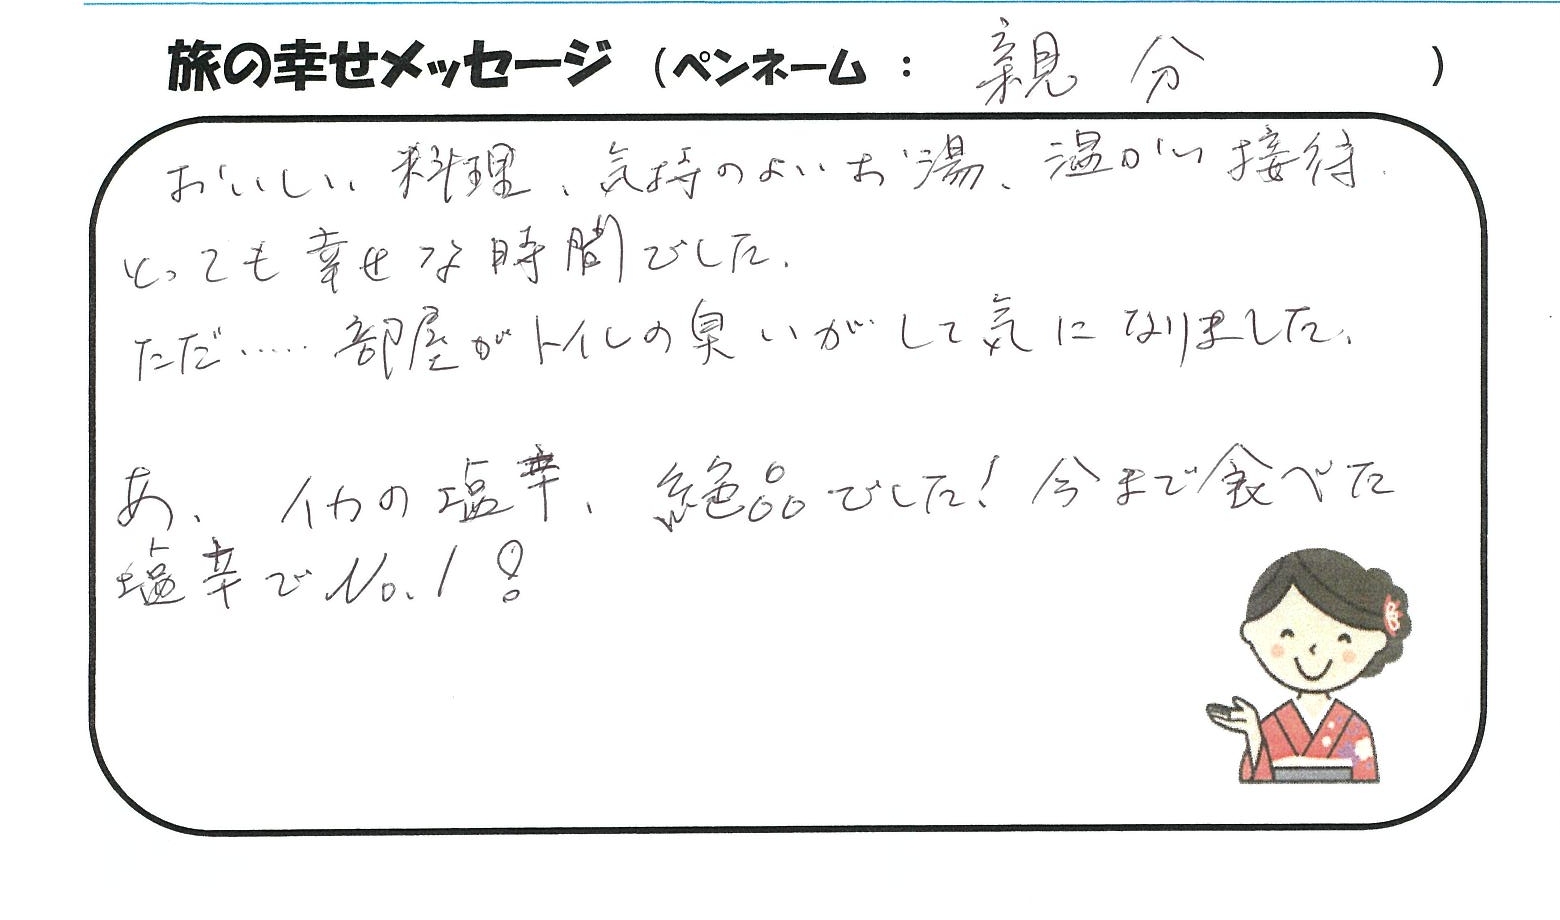 旅の幸せメッセージ（ペンネーム：親分）
おいしい料理、気持のよいお湯、温かい接待、
とっても幸せな時間でした.
ただ‥‥‥部屋がトイレの臭いがして気になりました.
あ、イカの塩辛、絶品でした!今まで食べた
塩辛でNo.1!